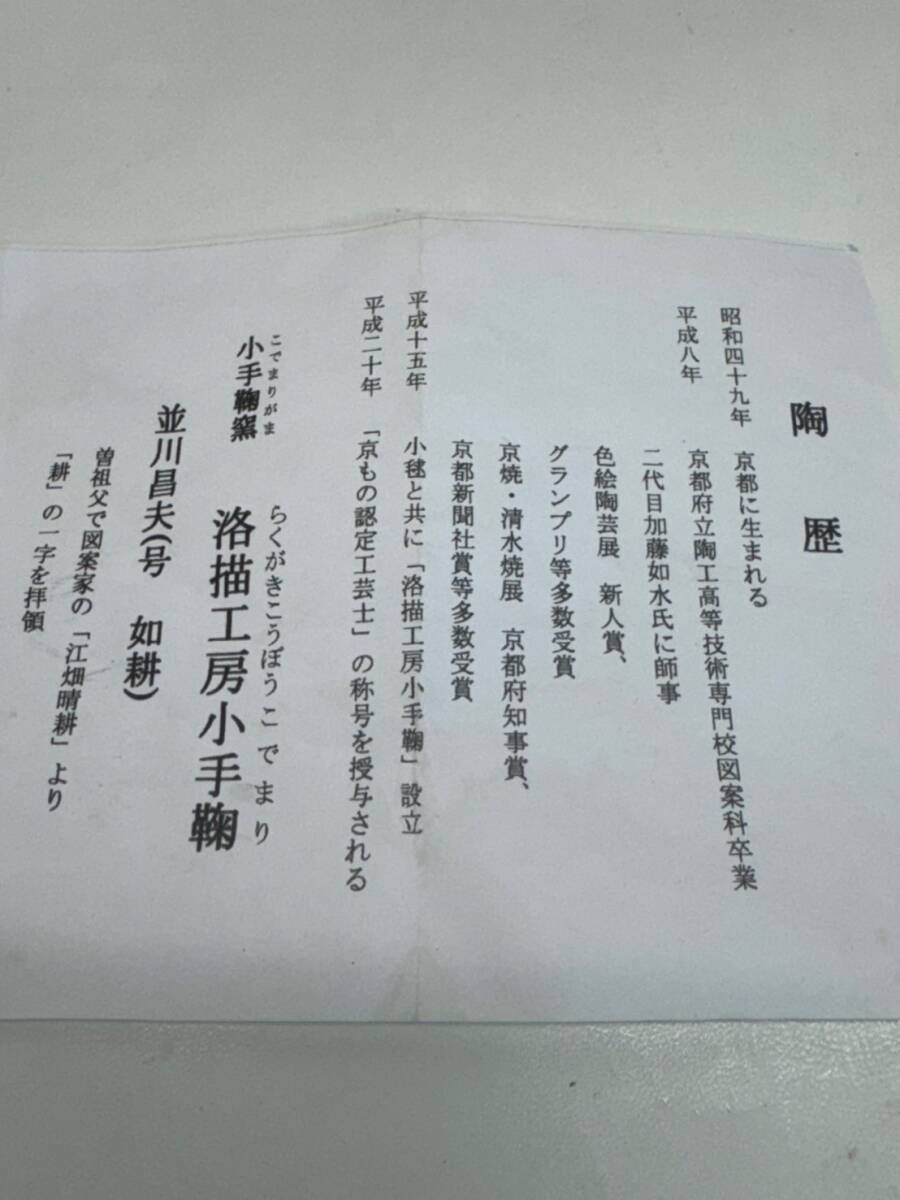 陶歴
昭和四十九年 京都に生まれる
平成八年 京都府立陶工高等技術専門校図案科卒業
二代目加藤如水氏に師事
色絵陶芸展 新人賞、
グランプリ等多数受賞
京焼・清水焼展 京都府知事賞、
京都新聞社賞等多数受賞
平成十五年 小毬と共に「洛描工房小手鞠」設立
平成二十年 「京もの認定工芸士」の称号を授与される
こでまりがま らくがきこうぼうこでまり
小手鞠窯 洛描工房小手鞠
並川昌夫(号 如耕)
曽祖父で図案家の「江畑晴耕」より
「耕」の一字を拝領